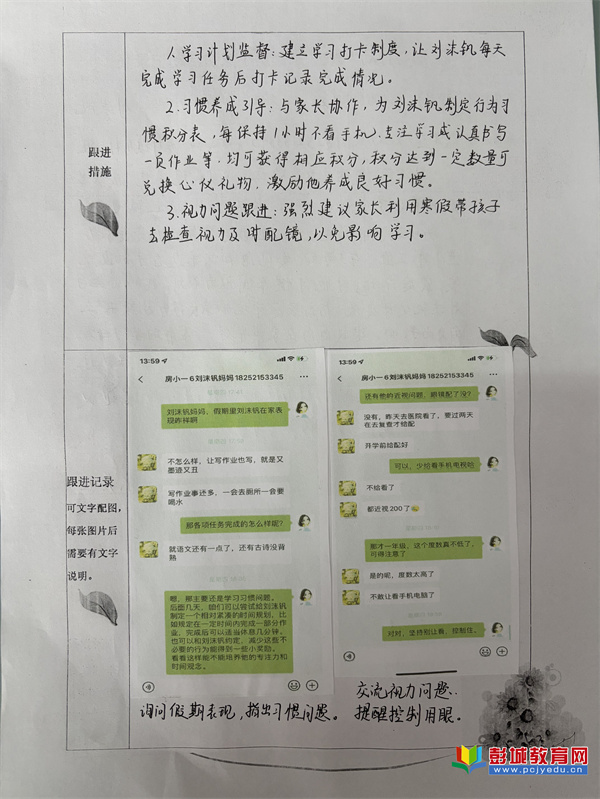 1.学习计划监督:建立学习打卡制度,让刘沫钒每天
完成学习任务后打卡记录完成情况。
2.习惯养成引导:与家长协作,为刘沫钒制定行为习
惯积分表,每保持1小时不看手机、专注学习或认真书写
一页作业等,均可获得相应积分,积分达到一定数量可
兑换心仪礼物,激励他养成良好习惯。
3.视力问题跟进:强烈建议家长利用寒假带孩子
去检查视力及时配镜,以免影响学习。
跟进
措施
跟进记录
可文字配图,
每张图片后
需要有文字
说明。
13:59
房小一6刘沫钒妈妈 18252153345
刘沫钒妈妈、假期里刘沫钒在家表
现咋样啊
不怎么样,让写作业也写,就是又
墨迹又丑
写作业事还多,一会去厕所一会要
喝水
那各项任务完成的怎么样呢?
就语文还有一点了,还有古诗没背
熟
嗯,那主要还是学习习惯问题。
后面几天,咱们可以尝试给刘沫钒
制定一个相对紧凑的时间规划,比
如规定在一定时间内完成一部分作
业,完成后可以适当休息几分钟。
也可以和刘沫钒约定,减少这些不
必要的行为能得到一些小奖励,
看看这样能不能培养他的专注力和
时间观念。
询问假期表现,指出习惯问题。
13:59
房小一6刘沫钒妈妈 18252153345
还有他的近视问题,眼镜配了没?
没有,昨天去医院看了,要过两天
在去复查才给配
开学前给配好
可以,少给看手机电视啦
不给看了
都近视200了
那才一年级,这个度数真不低了,
可得注意了
是的呢,度数太高了
不敢让看手机电脑了
对对,坚持别让看,控制住。
交流视力问题,
提醒控制用眼。
彭城教育网
www.pcjyedu.cn